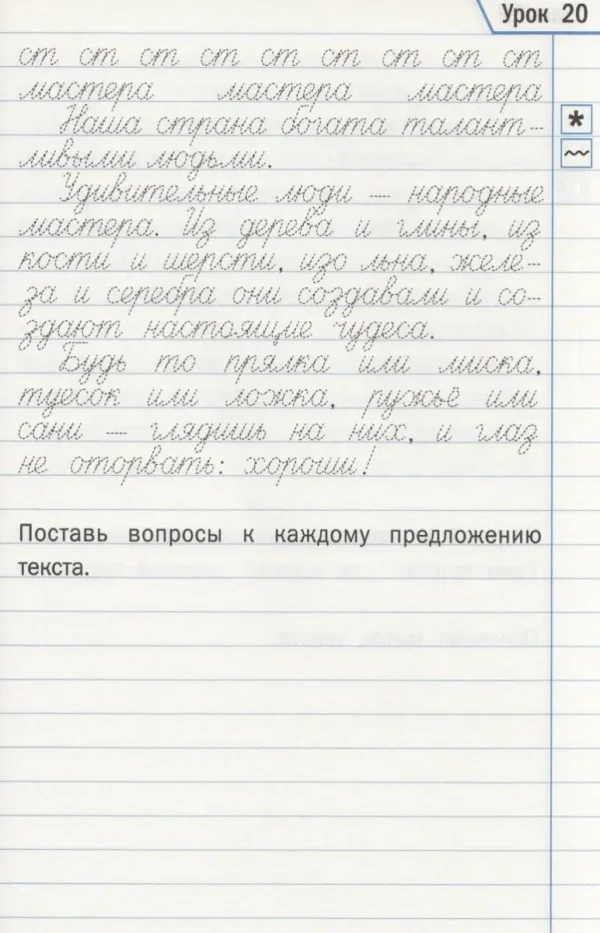 Урок 20
ст ст ст ст ст ст ст ст ст
мастера мастера мастера
Наша страна богата талант-
ливыми людьми.
Удивительные люди — народные
мастера. Из дерева и глины, из
кости и шерсти, изо льна, желе-
за и серебра они создавали и со-
здают настоящие чудеса.
Будь то прялка или миска,
туесок или ложка, ружьё или
сани — глядишь на них, и глаз
не оторвать: хороши!
Поставь вопросы к каждому предложению
текста.